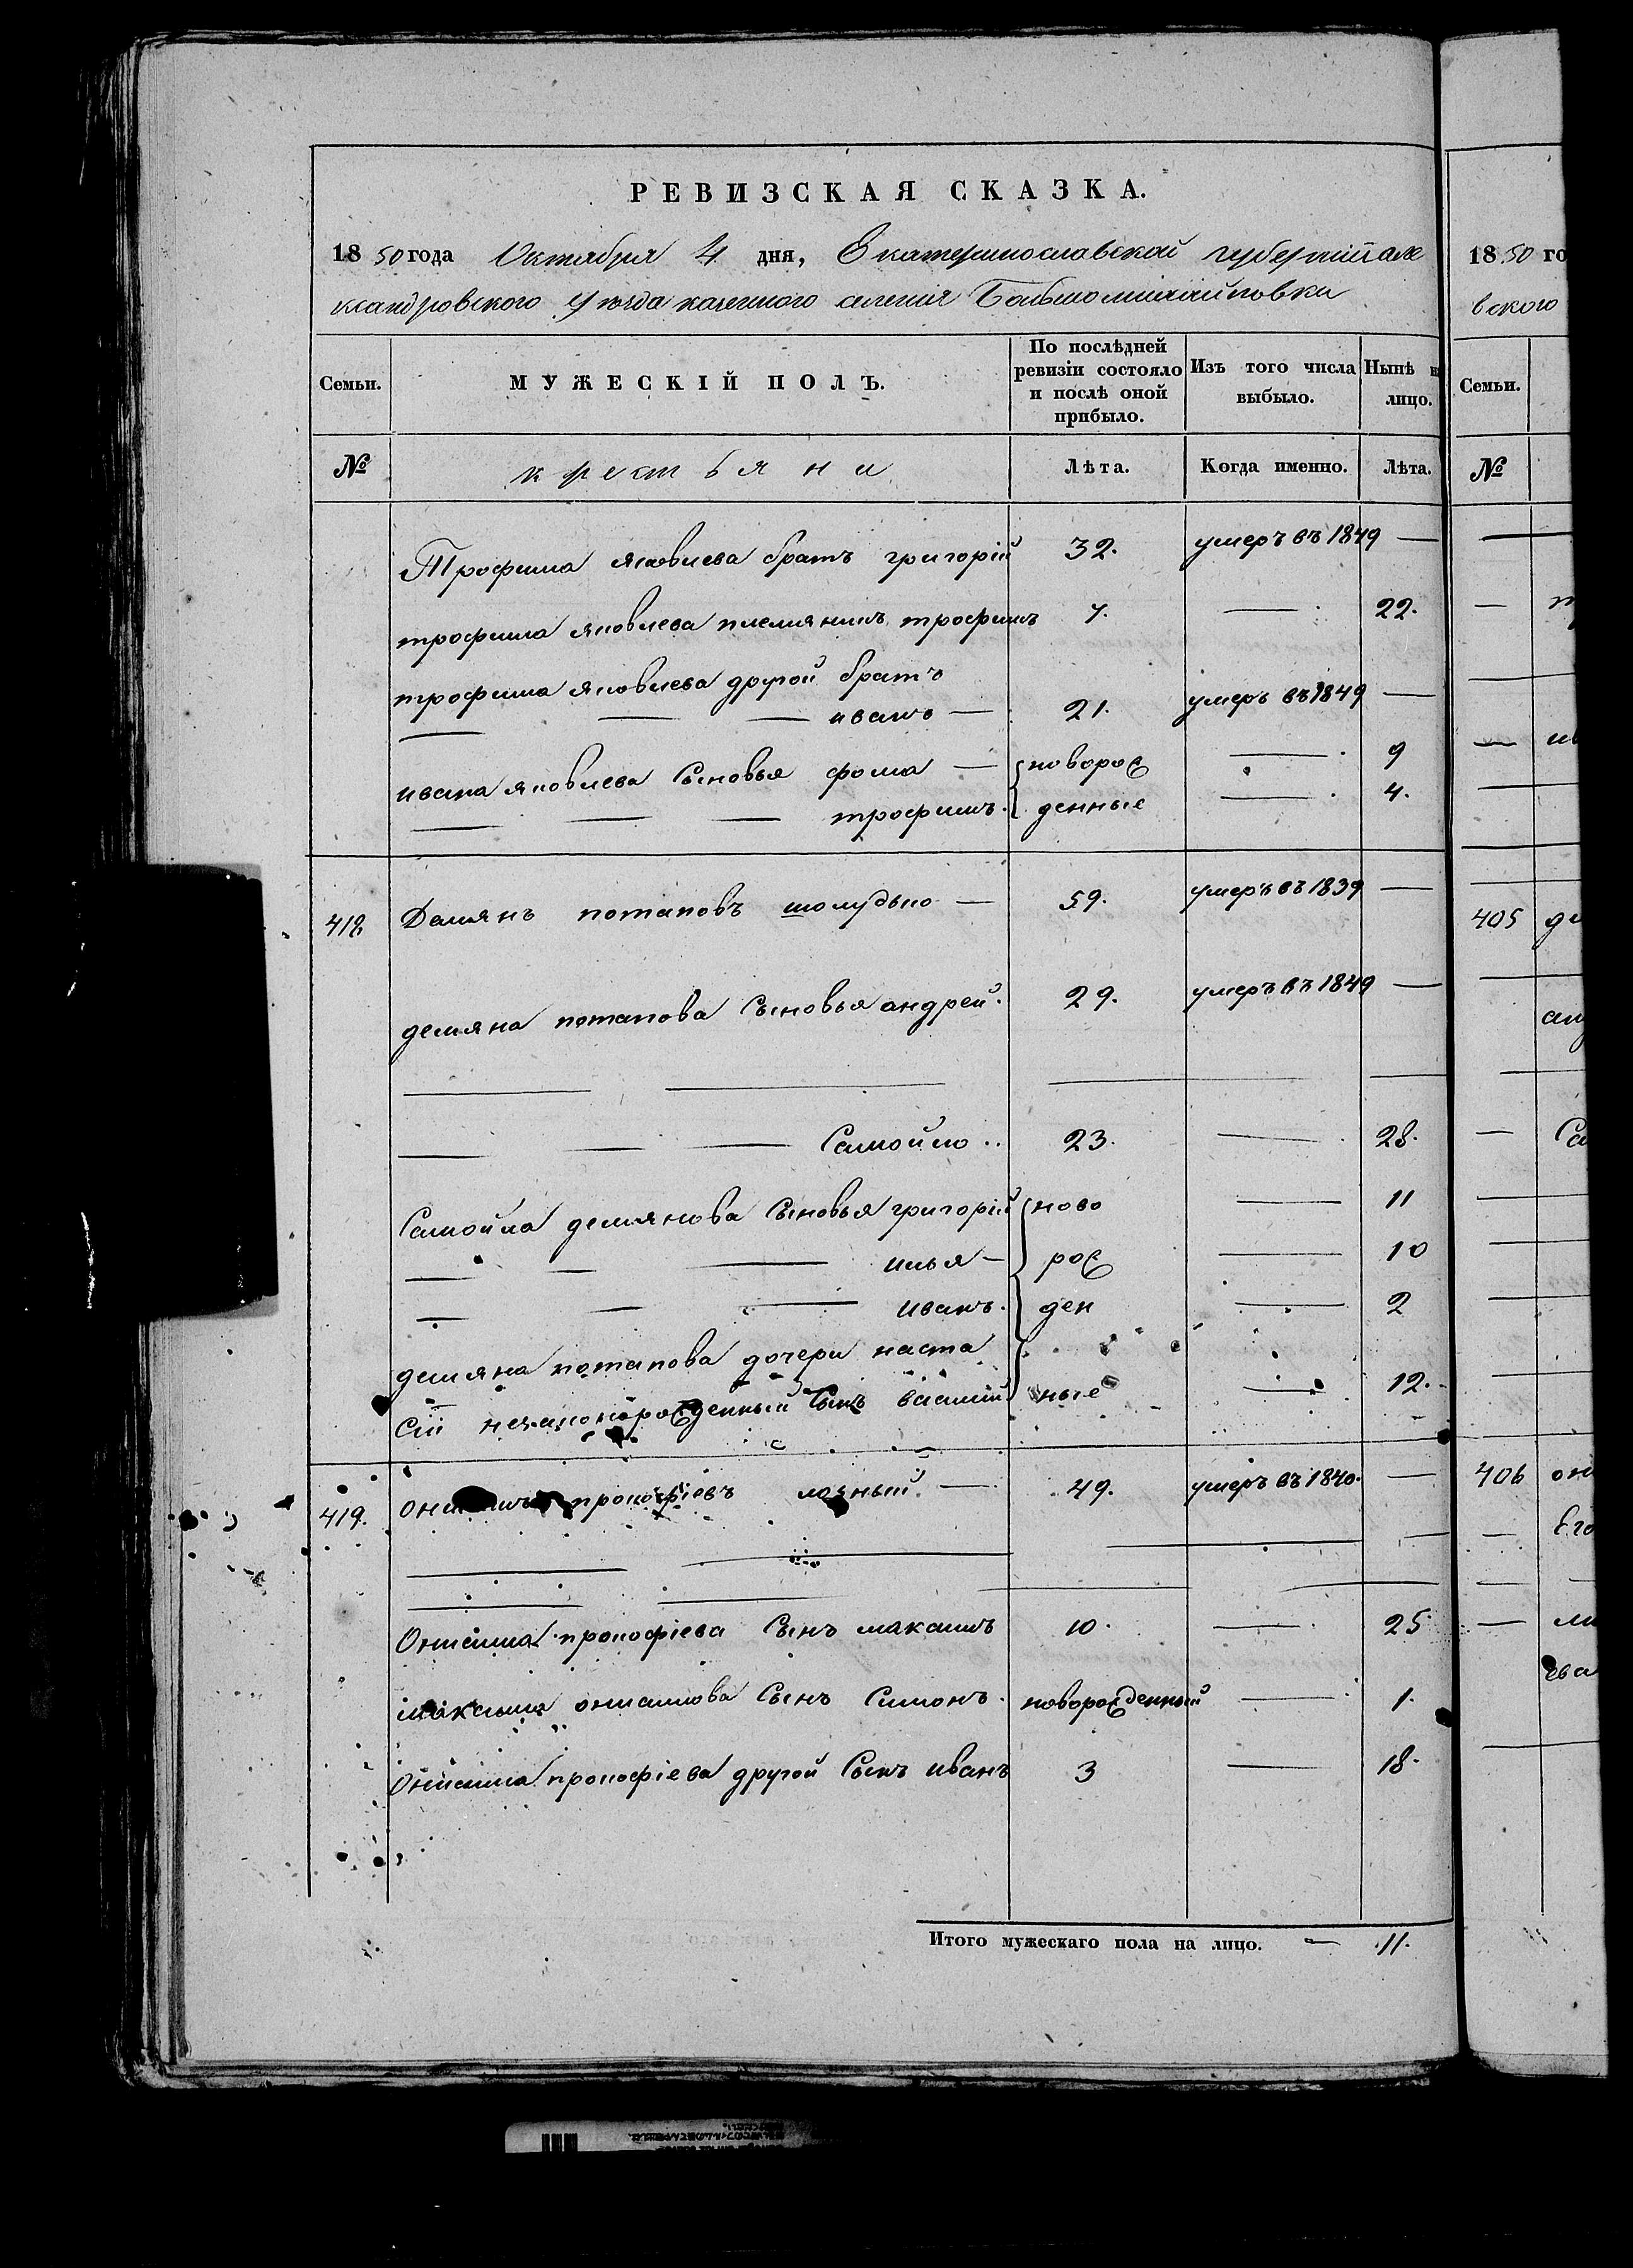 РЕВИЗСКАЯ СКАЗКА.
1850 года Октября 4 дня, Екатеринославской губернии але
ксандровского Уѣзда казенного селения Большомихайловки
Семьи. МУЖЕСКІЙ ПОЛЪ. По послѣдней ревизіи состояло и послѣ оной прибыло. Изъ того числа выбыло. Нынѣ н лицо.
№ крестьяни Лѣта. Когда именно. Лѣта.
Трофима яковлева братъ григорій 32. умеръ въ 1849 —
трофима яковлева племянникъ трофимъ 7. — 22.
трофима яковлева другой братъ
— — иванъ — 21. умеръ въ 1849 —
ивана яковлева Сыновья фома — новорож — 9
— — — трофимъ. денные — 4.
412 Демянъ потаповъ шолудько — 59. умеръ въ 1839 —
демяна потапова Сыновья андрей. 29. умеръ въ 1849 —
— — — Самойло .. 23. — 28.
Самойла демянова Сыновья григорій ново — 11
— — — илья — рож — 10
— — — иванъ. ден — 2
демяна потапова дочери наста
сіи незаконорожденный Сынъ василій ные — 12.
419. прокофіевъ — 49. умеръ въ 1840. —
Онисима прокофіева Сынъ максимъ 10. — 25
максима онисимова Сынъ Симонъ. новорожденный — 1.
Онисима прокофіева другой Сынъ иванъ 3 — 18.
Итого мужескаго пола на лицо. — 11.
1850 го
вского
Семьи.
№
405 де
анд
Са
406 он
Его